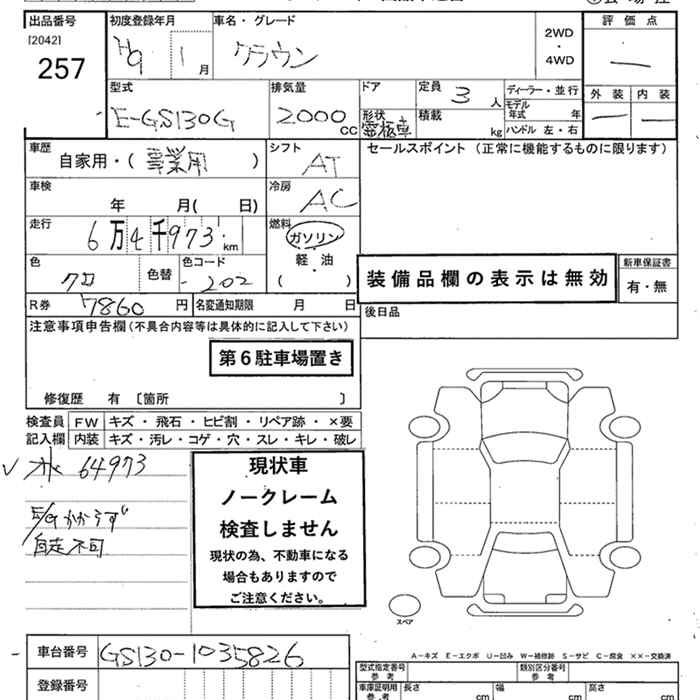 出品番号 初度登録年月 車名・グレード 評価点
[2042]
257
H9 1月 クラウン 2WD・4WD —
型式 排気量 ドア 定員 3人 ディーラー・並行 外装 内装
E-GS130G 2000CC 形状 霊柩車 積載 kg モデル年式 年 — —
ハンドル 左・右
車歴 シフト セールスポイント（正常に機能するものに限ります）
自家用・（事業用） AT
車検 冷房
年 月（ 日） AC
走行 燃料
6万4千973km ガソリン
軽・油
（ ）
色 色替 色コード 装備品欄の表示は無効 新車保証書
クロ 202 有・無
R券 7860円 名変通知期限 月 日 後日品
注意事項申告欄（不具合内容等は具体的に記入して下さい）
第6駐車場置き
修復歴 有〔箇所 〕
検査員 FW キズ・飛石・ヒビ割・リペア跡・×要
記入欄 内装 キズ・汚レ・コゲ・穴・スレ・キレ・破レ
64973
E/Gかからず
自走不可
現状車
ノークレーム
検査しません
現状の為、不動車になる
場合もありますので
ご注意ください。
スペア
A-キズ E-エクボ U-凹み W-補修跡 S-サビ C-腐食 ××-交換済
車台番号 GS130-1035826
登録番号
型式指定番号 参考 類別区分番号 参考
車庫証明用 参考 長さ cm 幅 cm 高さ cm